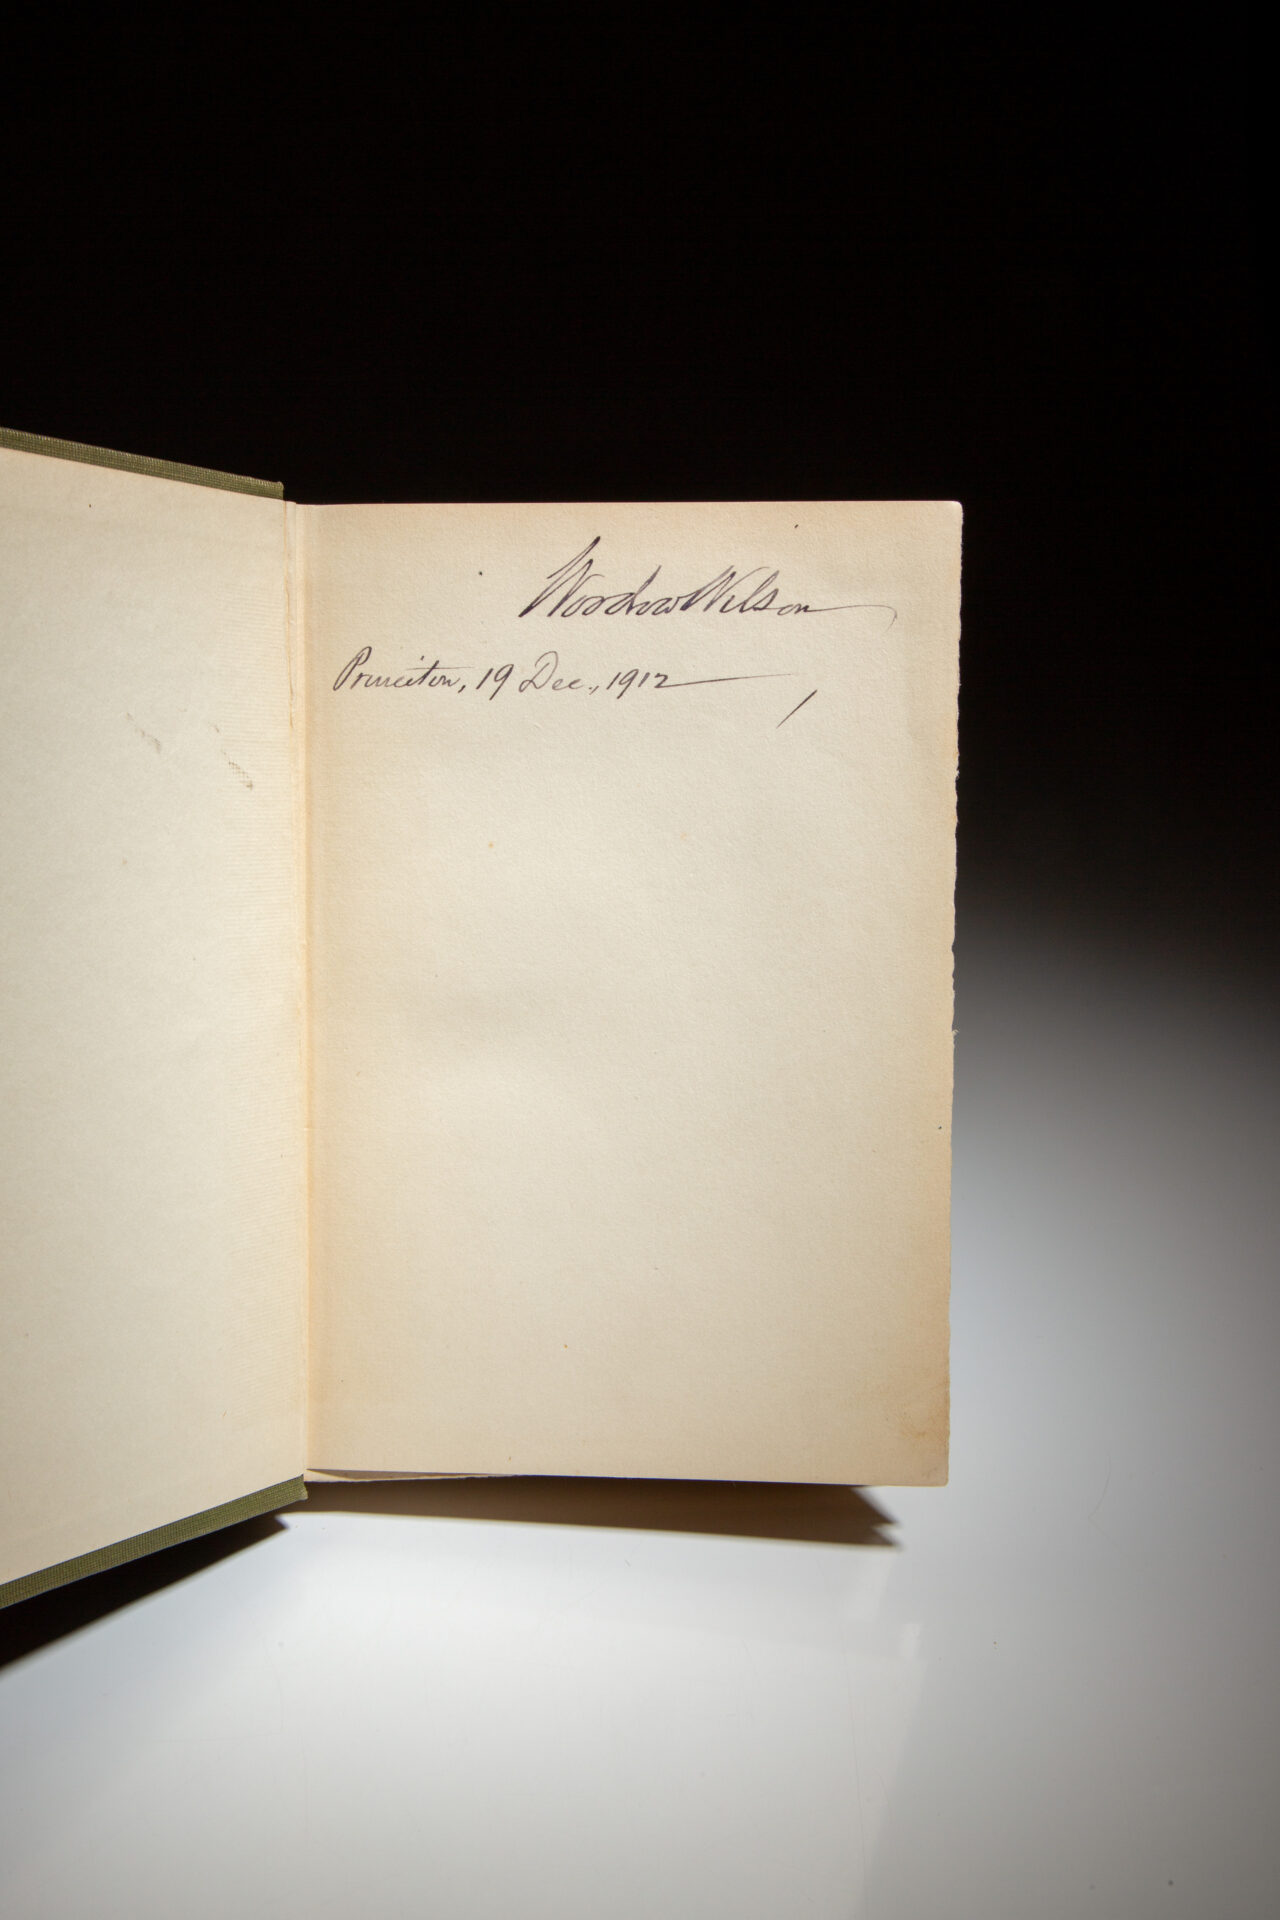 Woodrow Wilson
Princeton, 19 Dec., 1912